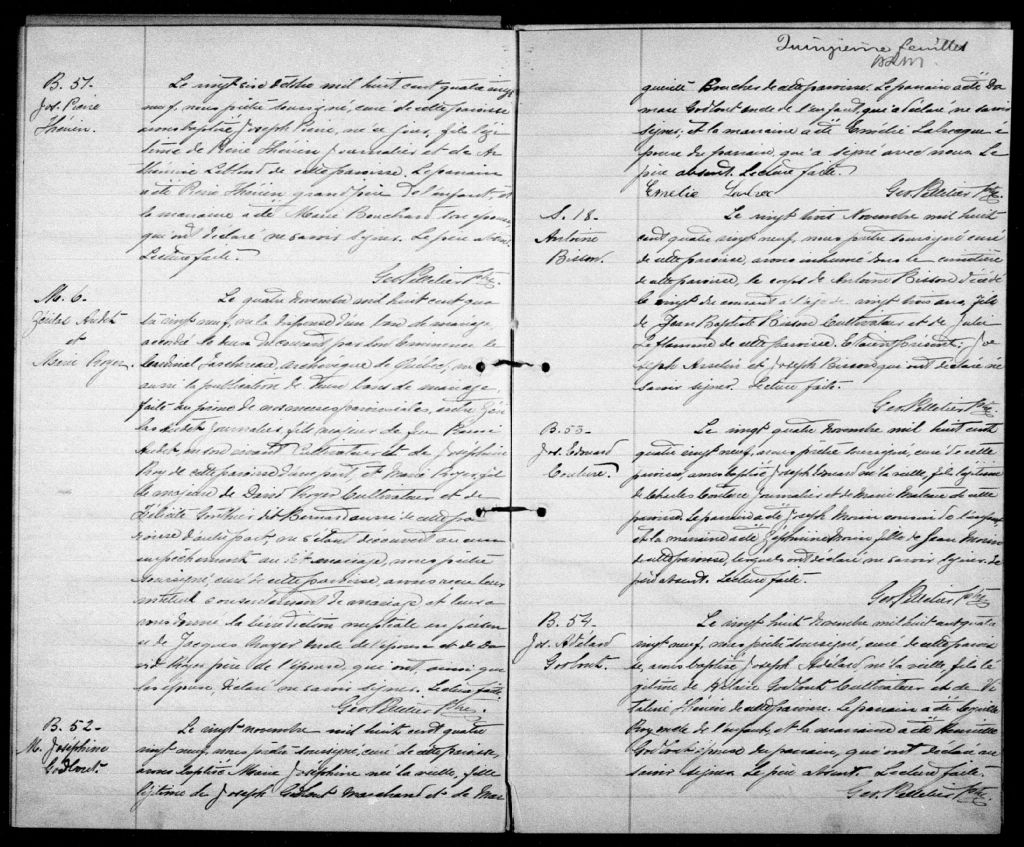 B. 51.
Jos. Pierre
Thérien.
Le vingt six octobre mil huit cent quatre vingt
neuf, nous prêtre soussigné, curé de cette paroisse
avons baptisé Joseph Pierre, né ce jour, fils légi
time de Pierre Thérien Journalier et de
Leblond de cette paroisse. Le parrain
a été Pierre Thérien grand père de l'enfant, et
la marraine a été Marie Bouchard son épouse
qui ont déclaré ne savoir signer. Le père absent.
Lecture faite.
Geo. Pelletier Ptre.
M. 6.
Audet
et
Marie Royer.
Le quatre Novembre mil huit cent qua
tre vingt neuf, vu la dispense d'un ban de mariage,
accordée par Son Eminence le
Cardinal Taschereau, archevêque de Québec, vu
aussi la publication de deux bans de mariage
faite au prône de nos messes paroissiales, entre
Audet Journalier, fils majeur de Pierre
Audet, en son vivant Cultivateur et de Joséphine
Roy de cette paroisse d'une part, et Marie Royer, fil
le majeure de David Royer Cultivateur et de
Félicité Gonthier dit Bernard aussi de cette pa
roisse d'autre part, ne s'étant découvert aucun
empêchement au dit mariage, nous prêtre
soussigné, curé de cette paroisse, avons reçu leur
mutuel consentement de mariage et leur a
vons donné la bénédiction nuptiale en présen
ce de Jacques Royer oncle de l'épouse et de Da
vid Royer père de l'épouse, qui ont, ainsi que
les époux, déclaré ne savoir signer. Lecture faite.
Geo. Pelletier Ptre.
B. 52.
M. Joséphine
Godbout.
Le vingt novembre mil huit cent quatre
vingt neuf, nous prêtre soussigné, curé de cette paroisse,
avons baptisé Marie Joséphine née la veille, fille
légitime de Joseph Godbout Marchand et de Mar
Quinzième feuillet
guerite Boucher de cette paroisse. Le parrain a été Da
mase Godbout oncle de l'enfant, qui a déclaré ne savoir
signer, et la marraine a été Emélie Larocque é
pouse du parrain, qui a signé avec nous. Le
père absent. Lecture faite.
Emélie
Geo. Pelletier Ptre.
S. 18.
Antoine
Bisson.
Le vingt trois Novembre mil huit
cent quatre vingt neuf, nous prêtre soussigné curé
de cette paroisse, avons inhumé dans le cimetière
de cette paroisse, le corps de Antoine Bisson décédé
le vingt du courant à l'âge de vingt trois ans, fils
de Jean Baptiste Bisson Cultivateur et de Julie
Laflamme de cette paroisse. Etaient présents: Jo
seph et Joseph Bisson qui ont déclaré ne
savoir signer. Lecture faite.
Geo. Pelletier Ptre.
B. 53.
Jos. Edouard
Couture.
Le vingt quatre Novembre mil huit cent
quatre vingt neuf, nous prêtre soussigné, curé de cette
paroisse, avons baptisé Joseph Edouard né la veille, fils légitime
de Charles Couture Journalier et de Marie de cette
paroisse. Le parrain a été Joseph Morin cousin de l'enfant
et la marraine a été Morin fille de Jean Morin
de cette paroisse, lesquels ont déclaré ne savoir signer. Le
père absent. Lecture faite.
Geo. Pelletier Ptre.
B. 54.
Jos. Adélard
Godbout.
Le vingt huit Novembre mil huit cent quatre
vingt neuf, nous prêtre soussigné, curé de cette parois
se, avons baptisé Joseph Adélard né la veille, fils lé
gitime de Hilaire Godbout Cultivateur et de
Thérien de cette paroisse. Le parrain a été
Roy oncle de l'enfant, et la marraine a été Henriette
Godbout épouse du parrain, qui ont déclaré ne
savoir signer. Le père absent. Lecture faite.
Geo. Pelletier Ptre.